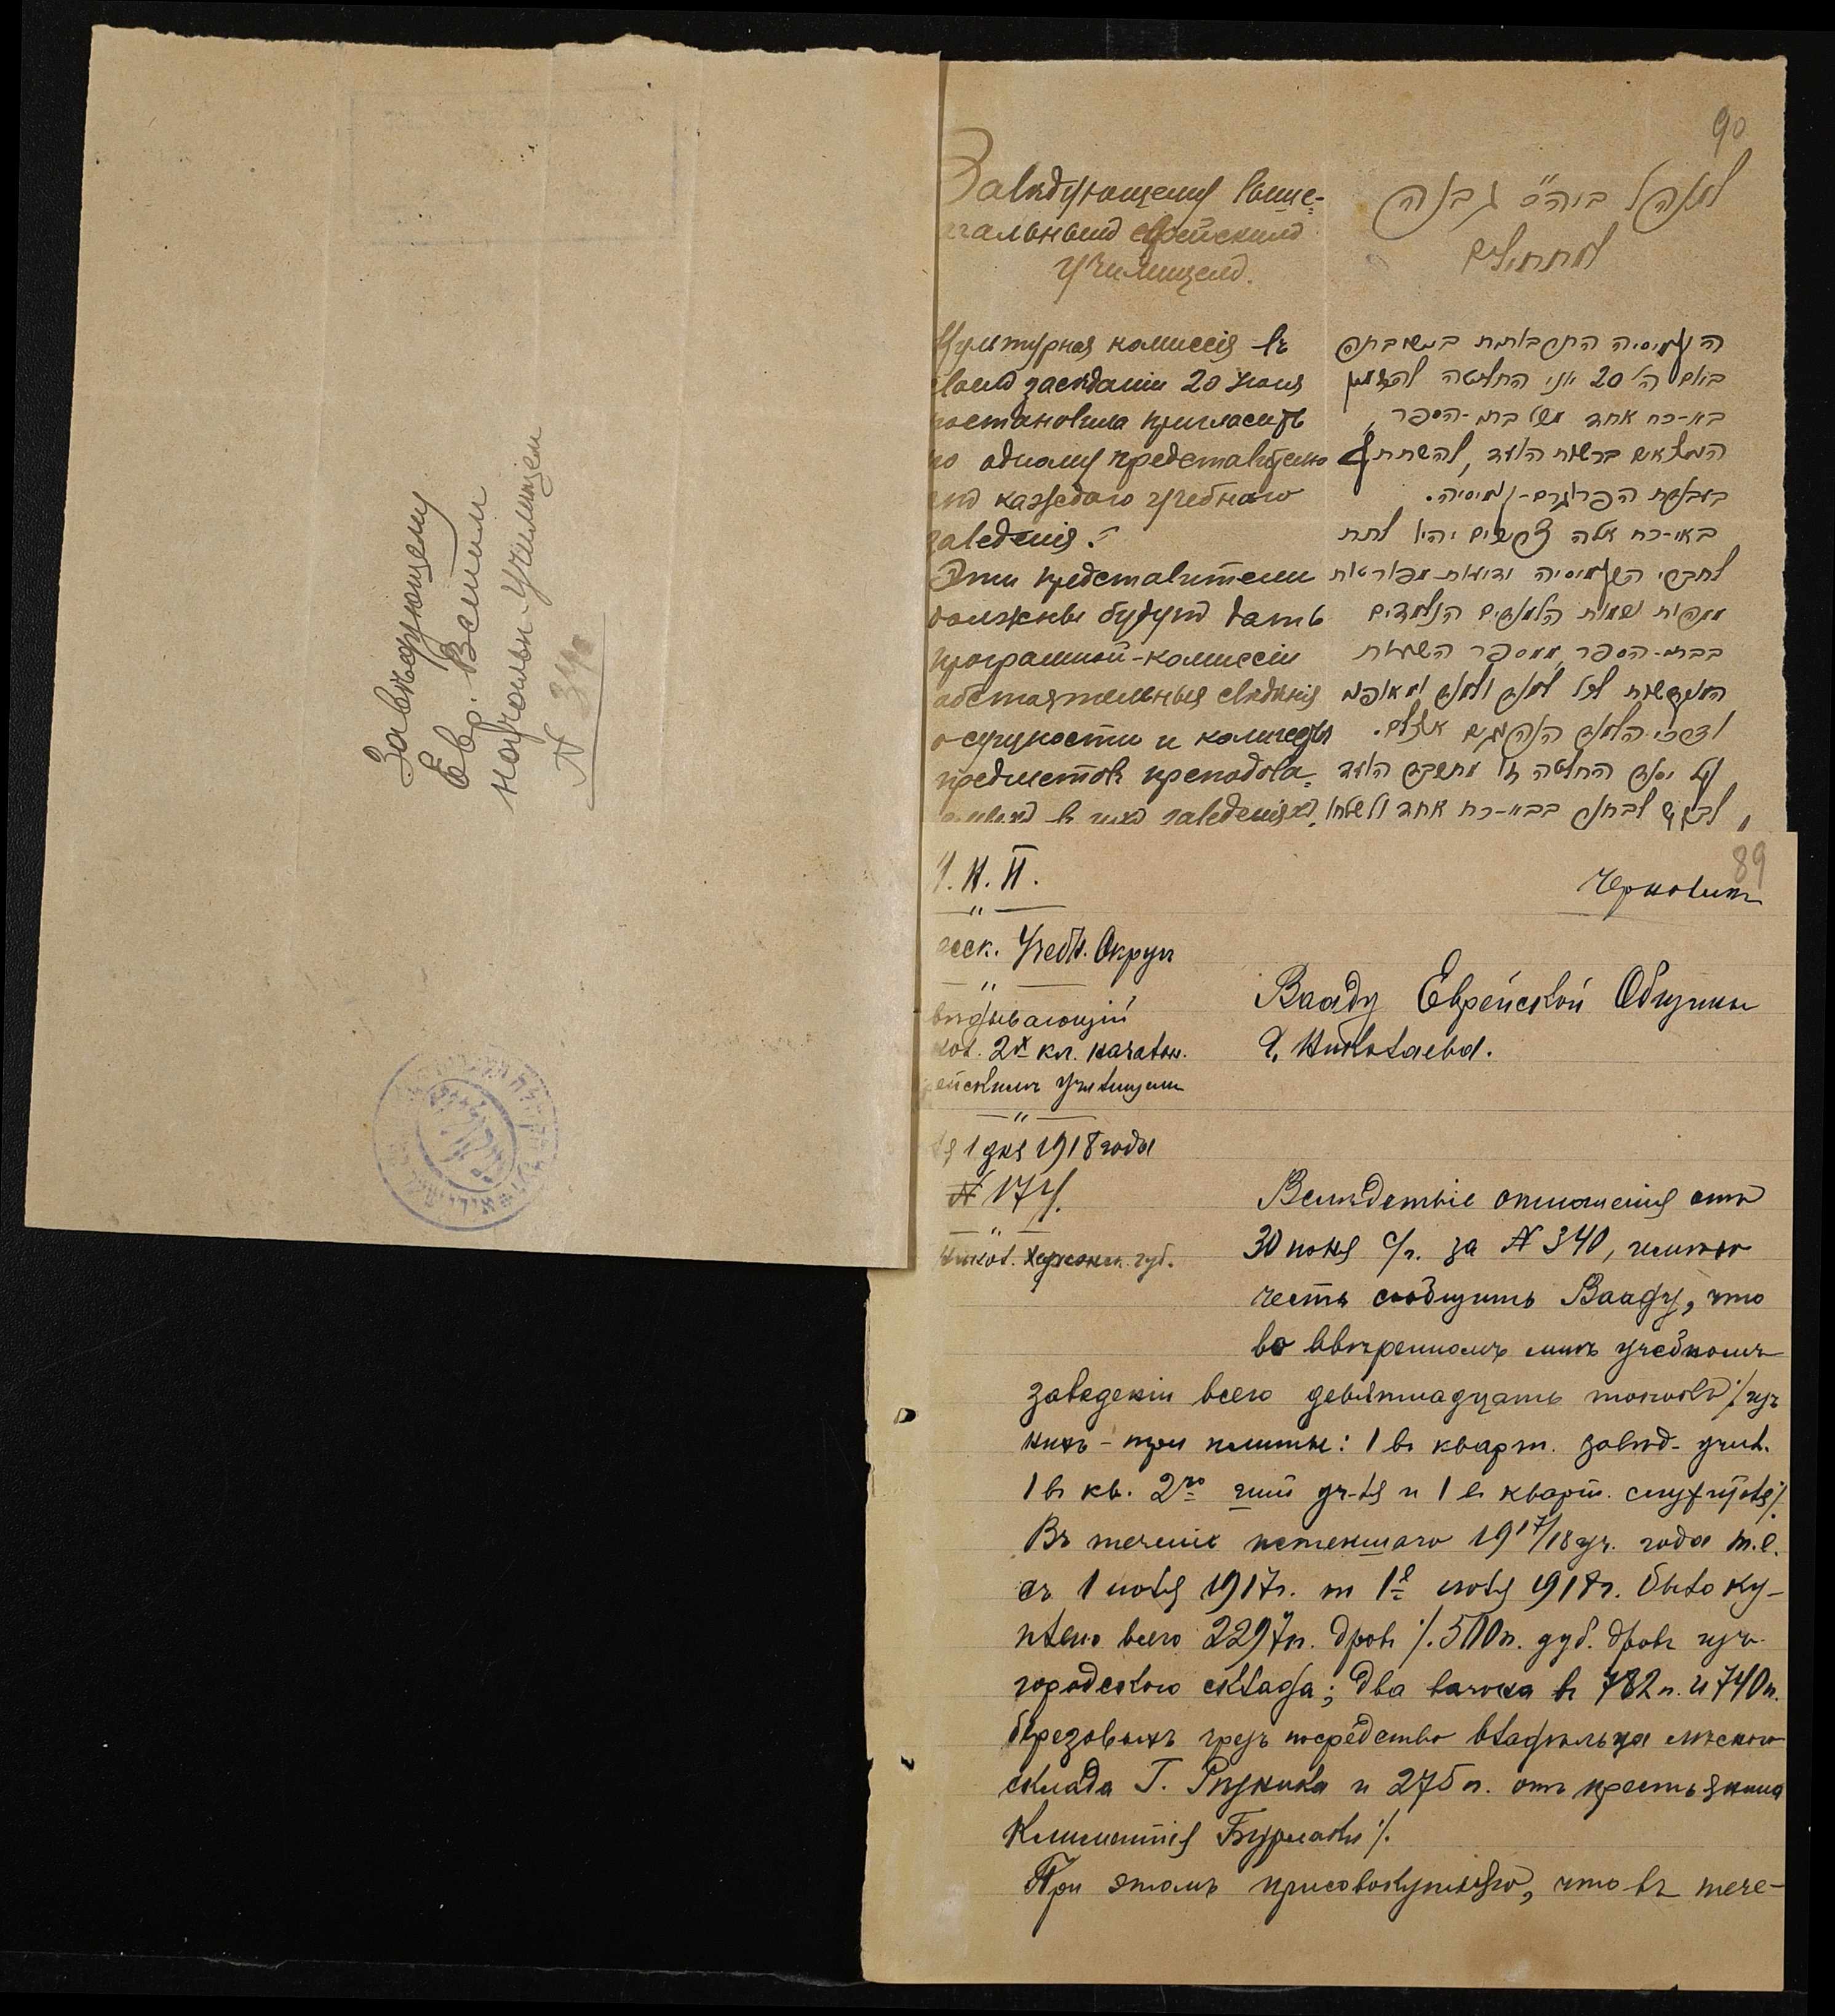 Завѣдующему
Евр. 
начальн. училищем
N 340
90
Завѣдующему Выше-
чальнымъ еврейскимъ
училищемъ.
культурная комиссія въ
своемъ засѣданіи 20 Іюня
постановила пригласить
по одному представителю
отъ каждаго учебнаго
заведенія.
Эти представители
должны будутъ дать
програмной-комиссіи
обстоятельныя свѣдѣнія
о сущности и количествѣ
предметовъ преподава-
въ ихъ заведеніяхъ.
למנהל ביה"ס גבוה
הקומיסיה התרבותית בישיבתה
ביום ה' 20 יוני החליטה להזמין
בא-כח אחד מבתי-הספר,
הנמצאים ברשות הועד, להשתתף
בעבודת הפרוגרם-קומיסיה.
באי-כח אלה צריכים יהיו לתת
לחברי הקומיסיה ידיעות מפורטות
שמות הלמודים הנלמדים
בבתי-הספר, ממספר השעות
לכל למוד ולמוד
ודרכי הלמוד הנהוגים אצלם.
על יסוד החלטה זו מתכבד הועד
לבקש לבחור בבא-כח אחד ולשלחו
89
Черновикъ
М. Н. П.
десск. Учебн. Округъ
вѣдывающій
кол. 2х кл. начальн.
рейскимъ училищемъ
ля 1 дня 1918 года
N 174.
Никол. Херсонск. губ.
Вааду Еврейской Общины
г. Николаева.
Вслѣдствіе отношенія отъ
30 іюня с/г. за N 340, имѣю
честь сообщить Вааду, что
во ввѣренномъ мнѣ учебномъ
заведеніи всего девятнадцать топокъ /. изъ
нихъ - три плиты: 1 въ кварт. завѣд. учил.
1 въ кв. 2го уч-ля и 1 въ кварт. служителя /.
Въ теченіе истекшаго 1917/18 уч. года т.е.
съ 1 іюля 1917г. по 1е іюля 1918г. было ку-
плено всего 2297п. дровъ /. 500п. дуб. дровъ изъ
городского склада; два вагона въ 782п. и 740п.
березовыхъ чрезъ посредство владѣльца лѣсного
склада Г. Рѣзника и 275п. отъ крестьянина
Климентія Бурлаки /.
При этомъ присовокупляю, что въ тече-